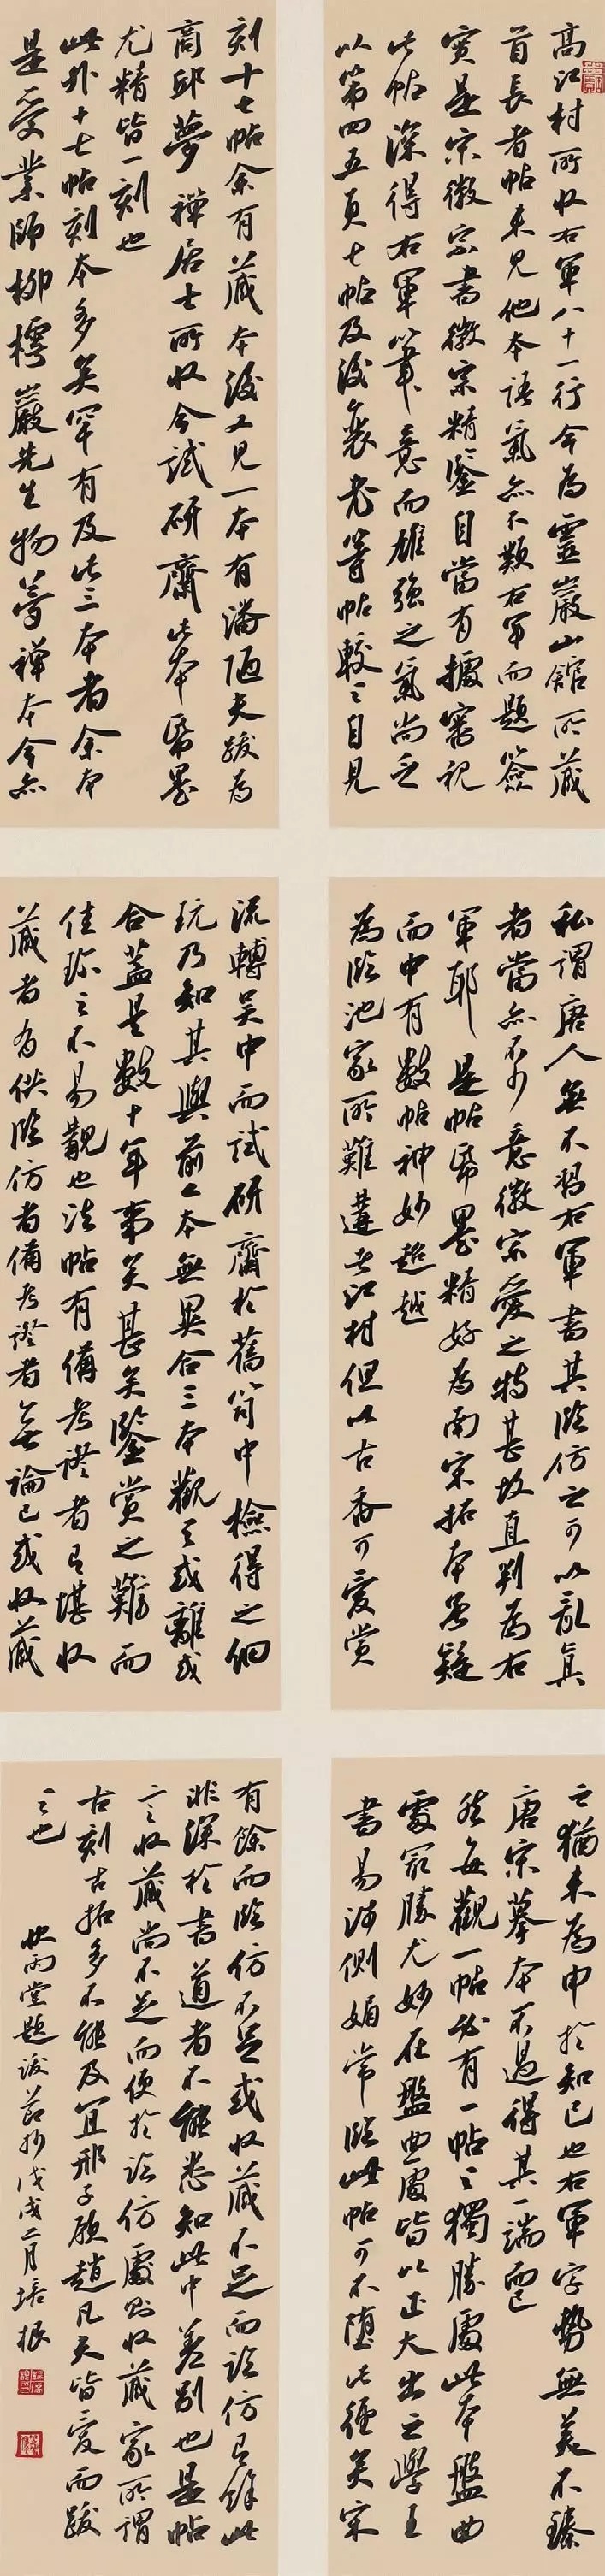 高江村所收右軍八十一行今為靈巖山館所藏
首長者帖未見他本語氣亦不類右軍而題簽
實是宋徽宗書徽宗精鑒自當有據審視
此帖深得右軍筆意而雄強之氣尚乏
以第四五頁七帖及後裹老等帖較之自見
私謂唐人無不習右軍書其臨仿之可以亂真
者當亦不少意徽宗愛之特甚故直判為右
軍耶 是帖帋墨精好為南宋拓本無疑
而中有數帖神妙超越
為臨池家所難遘者江村但以古香可愛賞
之猶未為申於知己也右軍字勢無美不臻
唐宋摹本不過得其一端而已
然每觀一帖必有一帖之獨勝處此本盤曲
處最勝尤妙在盤曲處皆以正大出之學王
書易涉側媚常臨此帖可不墮此徑矣宋
刻十七帖余有藏本後又見一本有潘陋夫跋為
商邱夢禪居士所收今試研齋此本帋墨
尤精皆一刻也
此外十七帖刻本多矣罕有及此三本者余本
是受業師柳樗巖先生物夢禪本今亦
流轉吳中而試研齋於舊笥中檢得之細
玩乃知其與前二本無異合三本觀之或離或
合蓋是數十年事矣甚矣鑒賞之難而
佳跡之不易觀也法帖有備考證者有堪收
藏者有供臨仿者備考證者無論已或收藏
有餘而臨仿不足或收藏不足而臨仿有餘此
非深於書道者不能悉知此中差別也是帖
言收藏尚不足而便於臨仿處則收藏家所謂
古刻古拓多不能及宜邢子愿趙凡夫皆愛而跋
之也
快雨堂題跋節抄戊戌二月培根